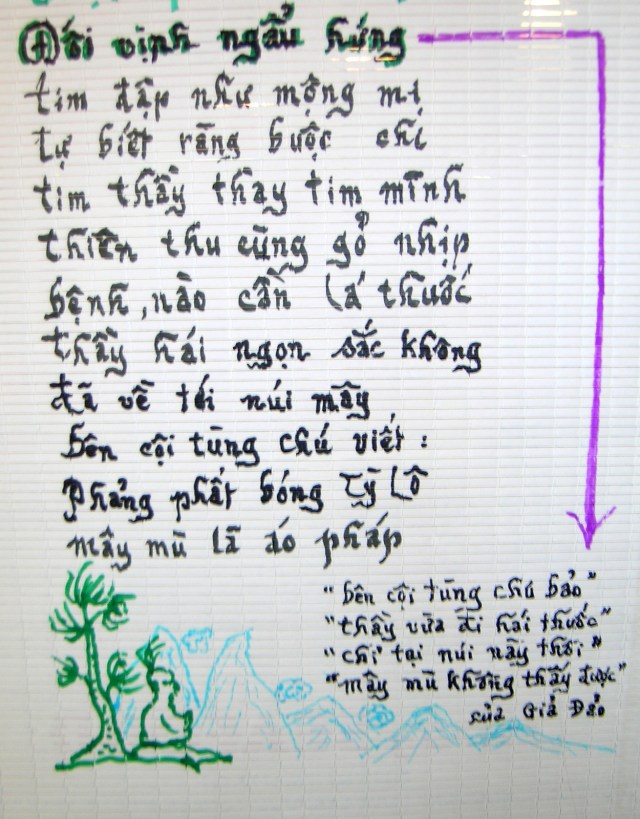 Ⓐ Đối vịnh ngẫu hứng
tim đập như mộng mị
tự biết ràng buộc chi
tim thầy thay tim mình
thiên thu cũng gỏ nhịp
bệnh, nào cần lá thuốc
thầy hái ngọn sắc không
đã về tới núi mây
bên cội tùng chú viết:
Phảng phất bóng Tỳ Lô
mây mù là áo pháp
"bên cội tùng chú bảo"
"thầy vừa đi hái thuốc"
"chỉ tại núi nầy thôi"
"mây mù không thấy được"
của Giả Đảo